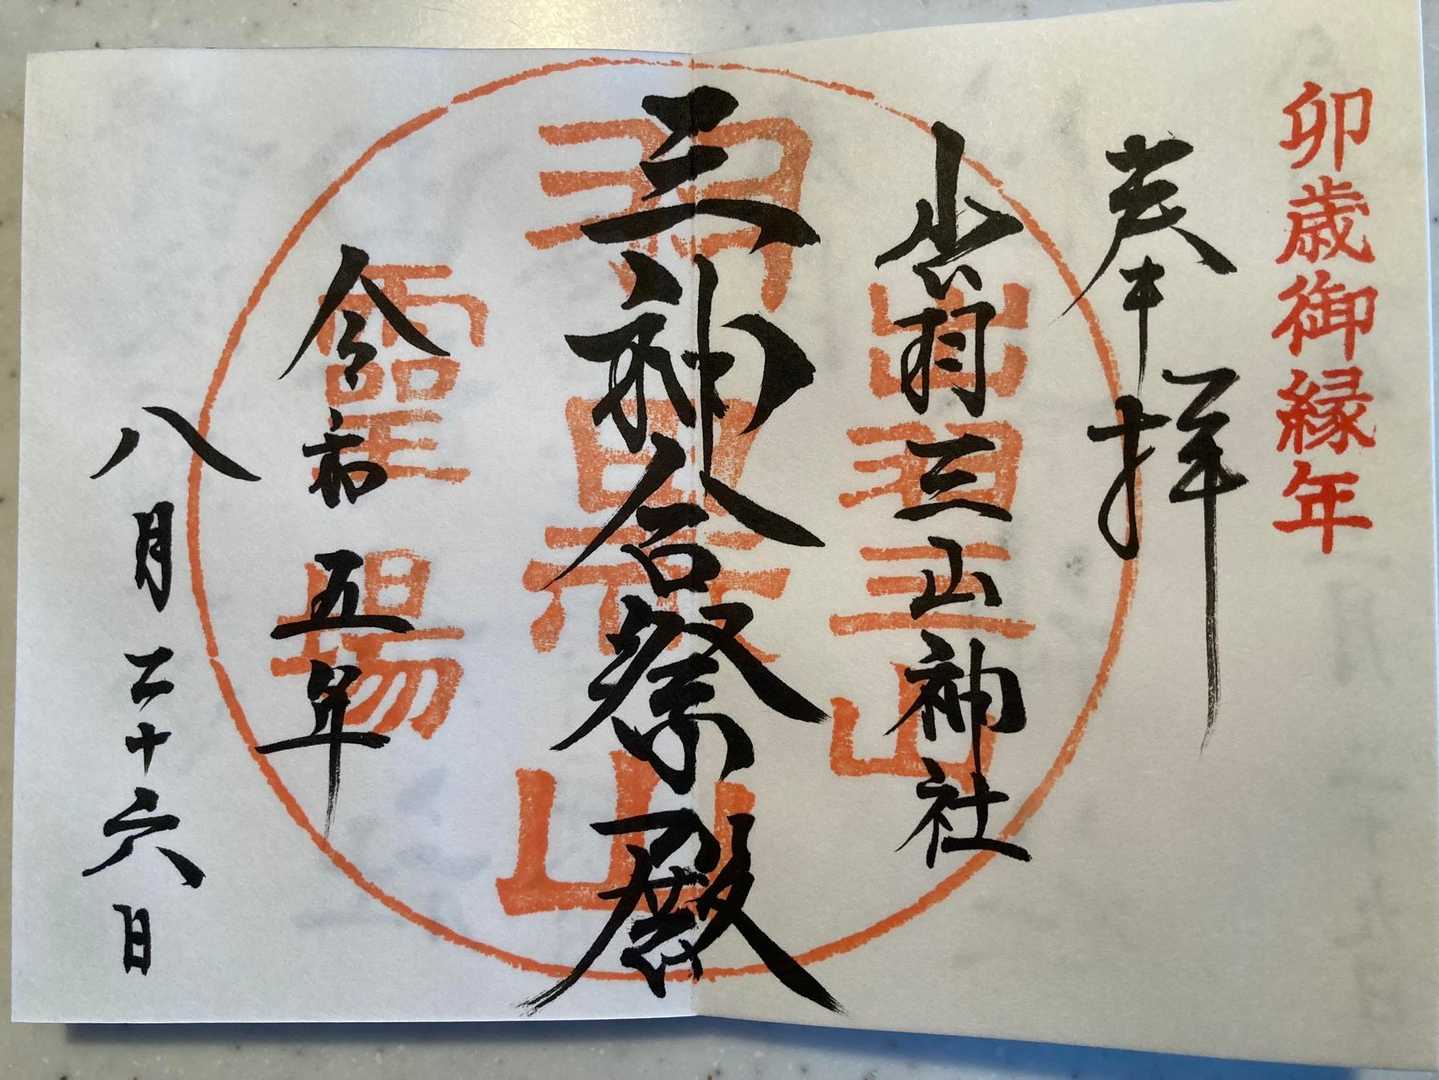 卯歳御縁年
奉拝
出羽三山神社
三神合祭殿
令和五年
八月二十六日
出羽三山
羽黒山
霊場